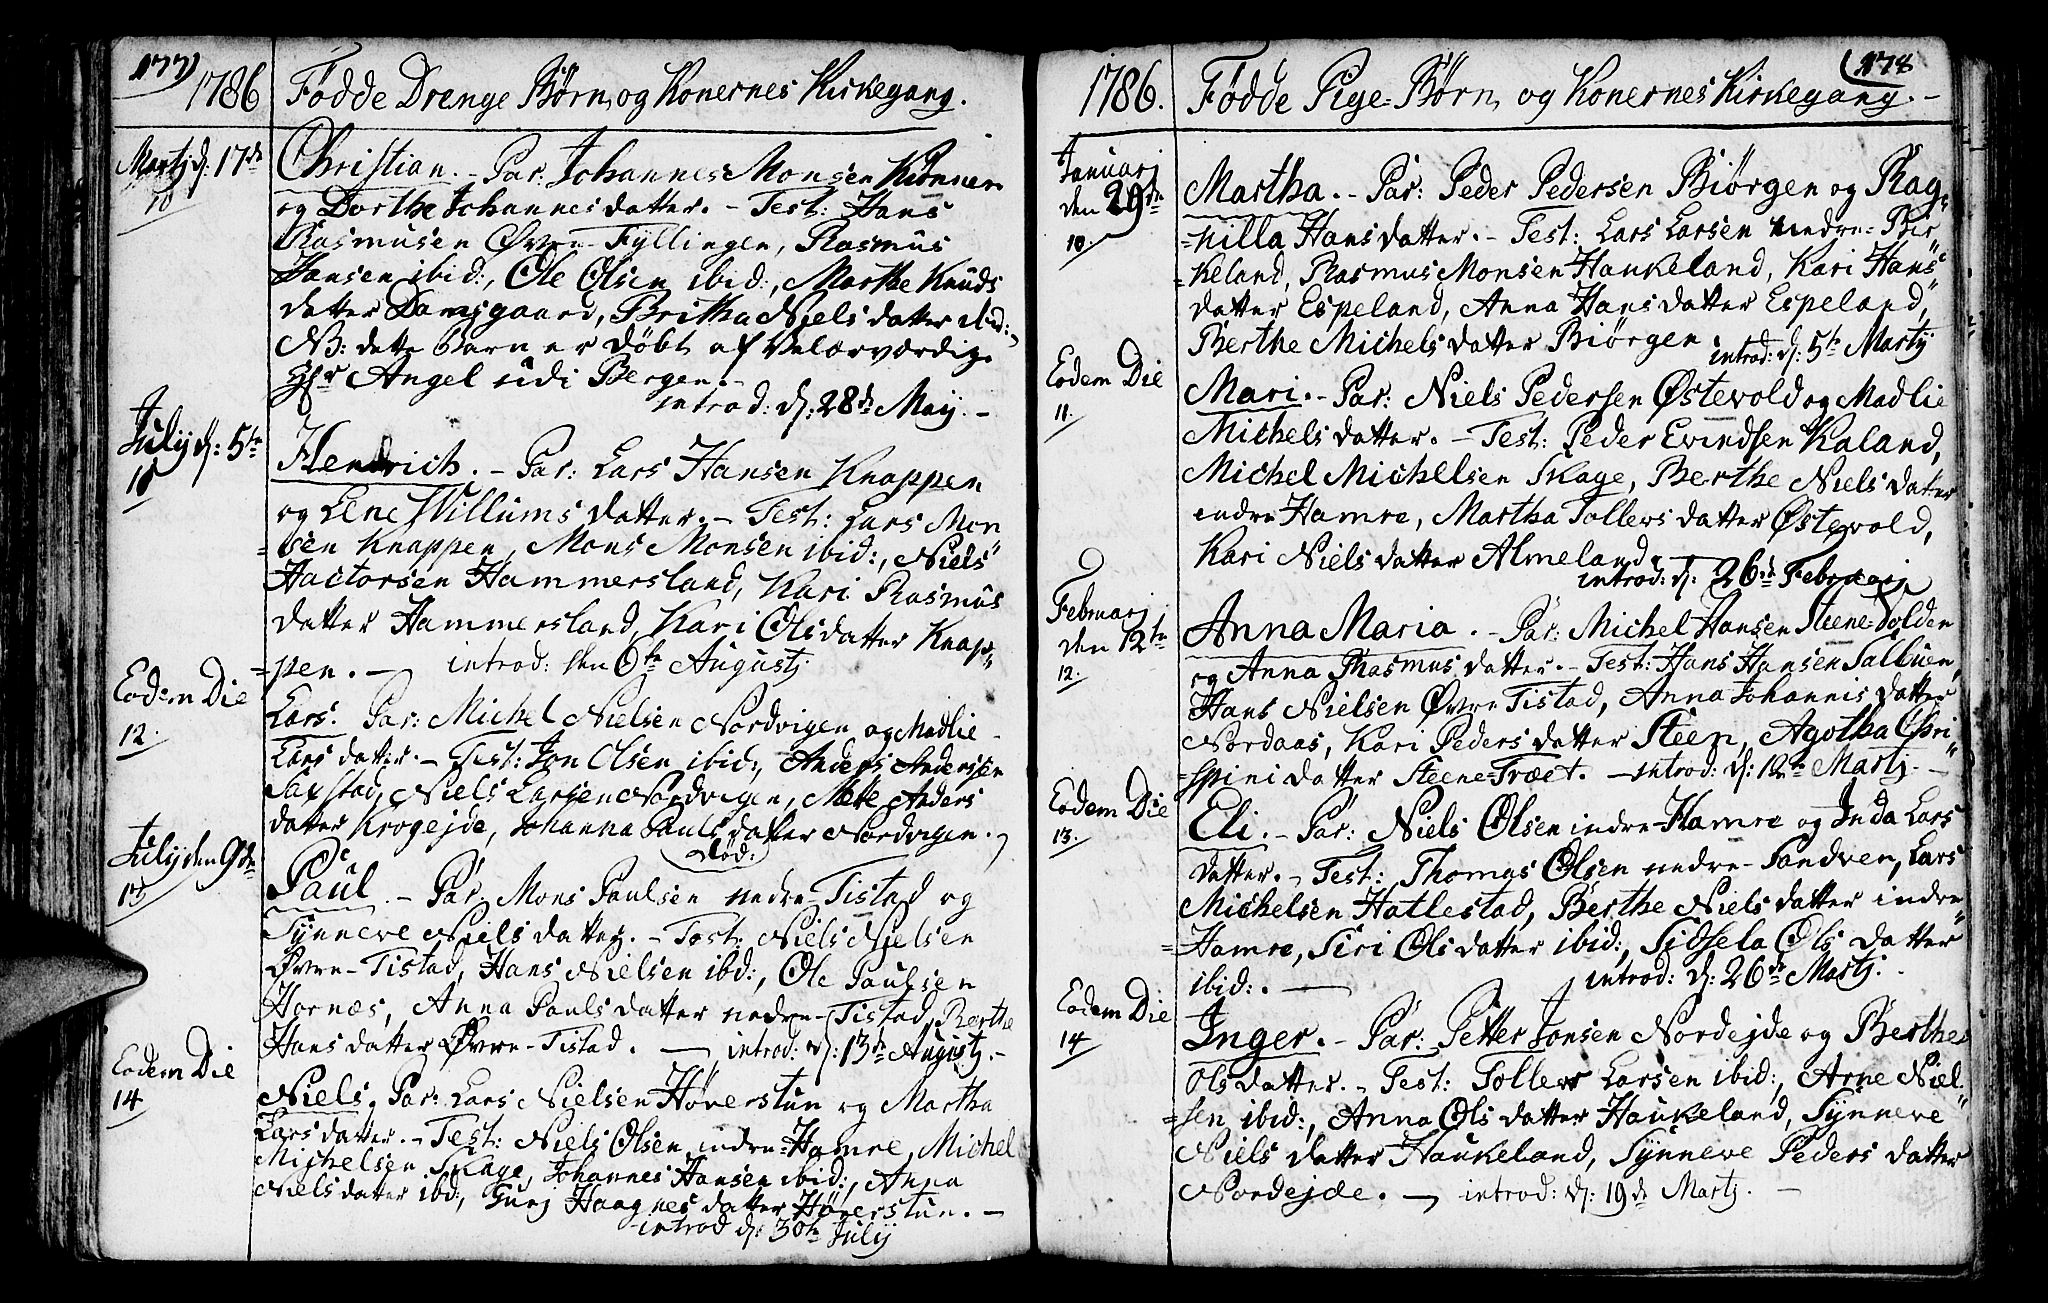 177)
1786 Födde Drenge Börn, og Konernes Kirkegang.
Martj d: 17de Christian. - Par: Johannes Monsen
10 og Dorthe Johannesdatter. - Test: Hans
Rasmusen Øvre-Fyllingen, Rasmus
Hansen ibid:, Ole Olsen ibid:, Marthe Knuds
datter Damsgaard, Britha Nielsdatter ibid:
NB: dette Barn er döbt af Velærværdige
Hr Angel udi Bergen. -
introd: d: 28de Maij. -
Julij d: 5te Hendrich. - Par: Lars Hansen Knappen
11 og Lene Willumsdatter. - Test: Lars Mon
=sen Knappen, Mons Monsen ibid:, Niels
Hactorsen Hammersland, Kari Rasmus
datter Hammersland, Kari Olsdatter Knap"
=pen. - introd: den 6te Augustj.
Eodem Die Lars. Par: Michel Nielsen Nordvigen og Madlie
12. Larsdatter. - Test: Jon Olsen ibid:, Anders Andersen
Saxstad, Niels Larsen Nordvigen, Mette Anders
datter Krogejde, Johanna Paulsdatter Nordvigen.
död:
Julij den 9de Paul. - Par: Mons Paulsen nedre-Tistad og
13 Synneve Nielsdatter. - Test: Niels Nielsen
Øvre-Tistad, Hans Nielsen ibd:, Ole Paulsen
Hornæs, Anna Paulsdatter nedre-Tistad, Berthe
Hansdatter Øvre-Tistad. - introd: d: 13de Augustj. -
Eodem Die Niels. Par: Lars Nielsen Høverstun og Martha
14 Larsdatter. - Test: Niels Olsen indre-Hamre, Michel
Michelsen Skage, Johannes Hansen ibid:, Anna
Nielsdatter ibd:, Guri Haagnesdatter Høverstun. -
introd d: 30te Julij
(178
1786. Födde Pige-Börn, og Konernes Kirkegang. -
Januarj den 29de Martha. - Par: Peder Pedersen Biørgen og Rag"
10. =nilla Hansdatter. - Test: Lars Larsen nedre-Bir"
=keland, Rasmus Monsen Haukeland, Kari Hans"
datter Espeland, Anna Hansdatter Espeland,
Berthe Michelsdatter Biørgen. introd: d: 5te Martij
Eodem Die Mari. - Par: Niels Pedersen Østevold og Madlie
11. Michelsdatter. - Test: Peder Evindsen Kaland,
Michel Michelsen Skage, Berthe Nielsdatter
indre Hamre, Martha Tollersdatter Østevold,
Kari Nielsdatter Almeland.
introd: d: 26de Februarj
Februarj den 12te Anna Maria. - Par: Michel Hansen Steene-Dolden
12. og Anna Rasmusdatter. - Test: Hans Hansen Salbuen,
Hans Nielsen Øvre Tistad, Anna Johannisdatter
Nordaas, Kari Pedersdatter Steen, Agotha Chri"
=spini datter Steene-Træet. - introd: d: 12te Martj. -
Eodem Die Eli. - Par: Niels Olsen indre-Hamre og Inda Lars
13. datter. - Test: Thomas Olsen nedre-Sandven, Lars
Michelsen Hatlestad, Berthe Nielsdatter indre"
=Hamre, Siri Olsdatter ibid:, Sidsela Olsdatter
ibid:. - introd: d: 26de Martj.
Eodem Die Inger. - Par: Petter Jonsen Nordejde og Berthe
14 Olsdatter. - Test: Toller Larsen ibid:, Arne Niel"
=sen ibid:, Anna Olsdatter Haukeland, Synneve
Nielsdatter Haukeland, Synneve Pedersdatter
Nordejde. - introd: d: 19de Martj. -